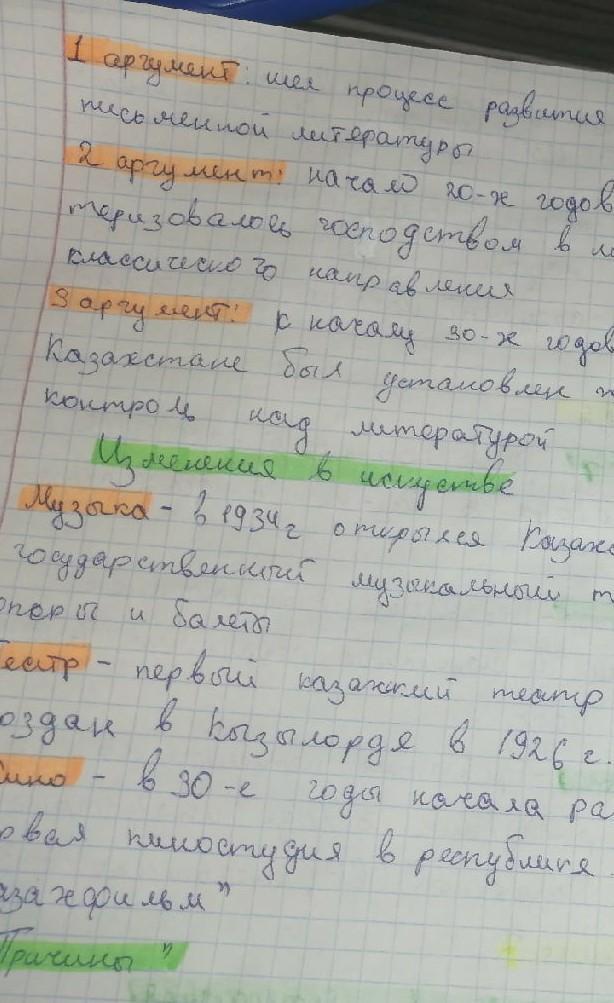 1 аргумент: шел процесс развития
письменной литературы
2 аргумент: начало 20-х годов
теризовалось господством в
классического направления
3 аргумент: к началу 30-х годов
Казахстане был установлен
контроль над литературой
Изменения в искустве
Музыка - в 1934 г открылся Казахс
государственный музыкальный т
оперы и балеты
Театр - первый казахкий театр
создан в Кызылорде в 1926 г.
Кино - в 30-е годы начала ра
рвая киностудия в республике
азахфильм"
Причины"